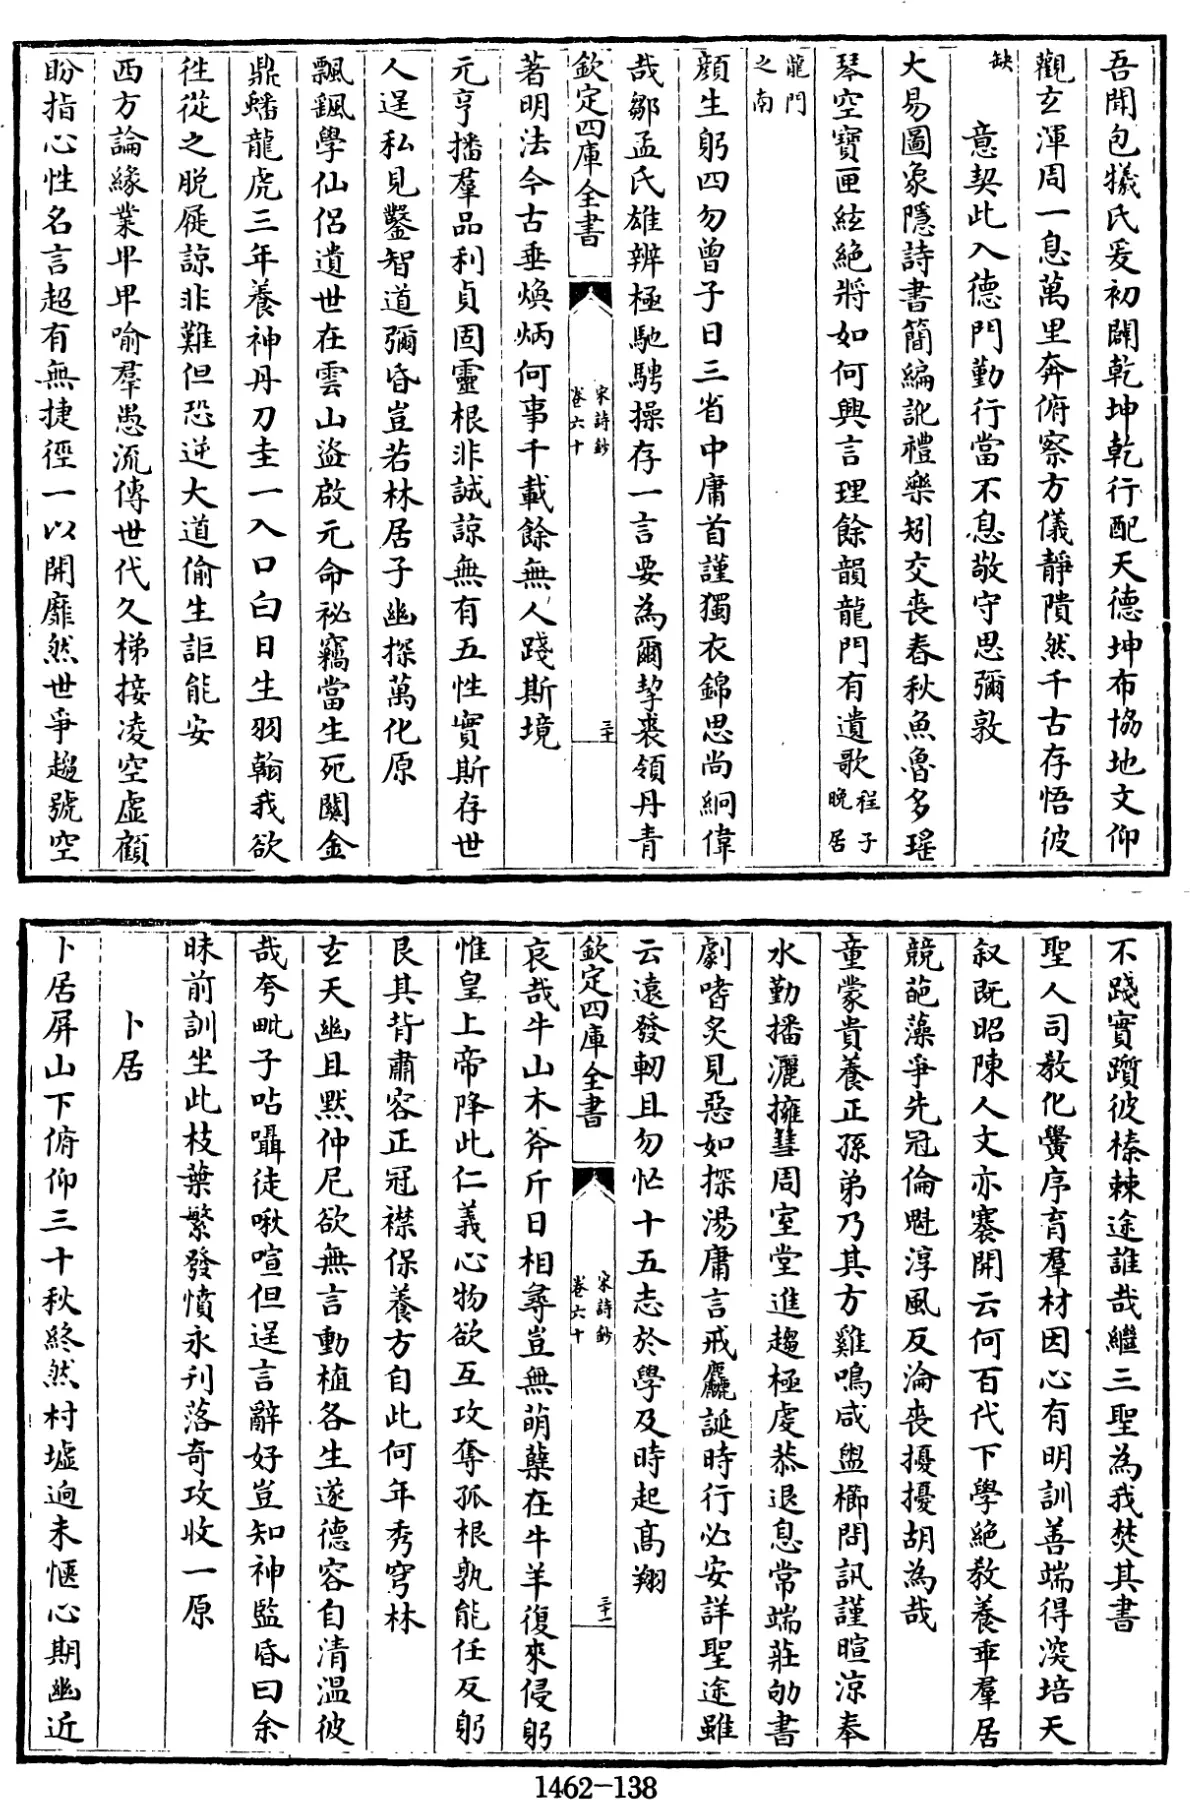 吾聞包犧氏爰初闢乾坤乾行配天德坤布協地文仰
觀玄渾周一息萬里奔俯察方儀靜隤然千古存悟彼
缺意契此入德門勤行當不息敬守思彌敦
大易圖象隱詩書簡編訛禮樂矧交喪春秋魚魯多瑤
琴空寶匣絃絶將如何興言理餘韻龍門有遺歌程子晚居
龍門之南
顔生躬四勿曾子日三省中庸首謹獨衣錦思尚絅偉
哉鄒孟氏雄辨極馳騁操存一言要為爾挈裘領丹青
欽定四庫全書
宋詩鈔
卷六十
三十
著明法今古垂煥炳何事千載餘無人踐斯境
元亨播羣品利貞固靈根非誠諒無有五性實斯存世
人逞私見鑿智道彌昏豈若林居子幽探萬化原
飄飖學仙侶遺世在雲山盜啟元命祕竊當生死關金
鼎蟠龍虎三年養神丹刀圭一入口白日生羽翰我欲
徃從之脫屣諒非難但恐逆大道偷生詎能安
西方論緣業卑卑喻羣愚流傳世代久梯接凌空虛顧
盼指心性名言超有無捷徑一以開靡然世爭趨號空
不踐實躓彼榛棘途誰哉繼三聖為我焚其書
聖人司教化黌序育羣材因心有明訓善端得深培天
叙既昭陳人文亦褰開云何百代下學絶教養乖羣居
競葩藻爭先冠倫魁淳風反淪喪擾擾胡為哉
童蒙貴養正孫弟乃其方雞鳴咸盥櫛問訊謹暄涼奉
水勤播灑擁篲周室堂進趨極虔恭退息常端莊劬書
劇嗜炙見惡如探湯庸言戒麤誕時行必安詳聖途雖
云遠發軔且勿忙十五志於學及時起高翔
欽定四庫全書
宋詩鈔
卷六十
三十一
哀哉牛山木斧斤日相尋豈無萌蘖在牛羊復來侵躬
惟皇上帝降此仁義心物欲互攻奪孤根孰能任反躬
艮其背肅容正冠襟保養方自此何年秀穹林
玄天幽且默仲尼欲無言動植各生遂德容自清温彼
哉夸毗子呫囁徒啾喧但逞言辭好豈知神監昏曰余
昧前訓坐此枝葉繁發憤永刋落奇攻收一原
卜居
卜居屏山下俯仰三十秋終然村墟逈未愜心期幽近
1462-138